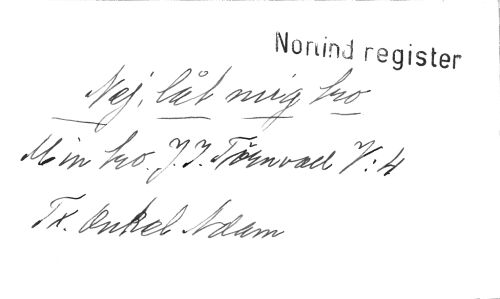 Nomind register
Nej, låt mig tro
Min tro. J. I. Törnvall V:4
Tx. Onkel Adam